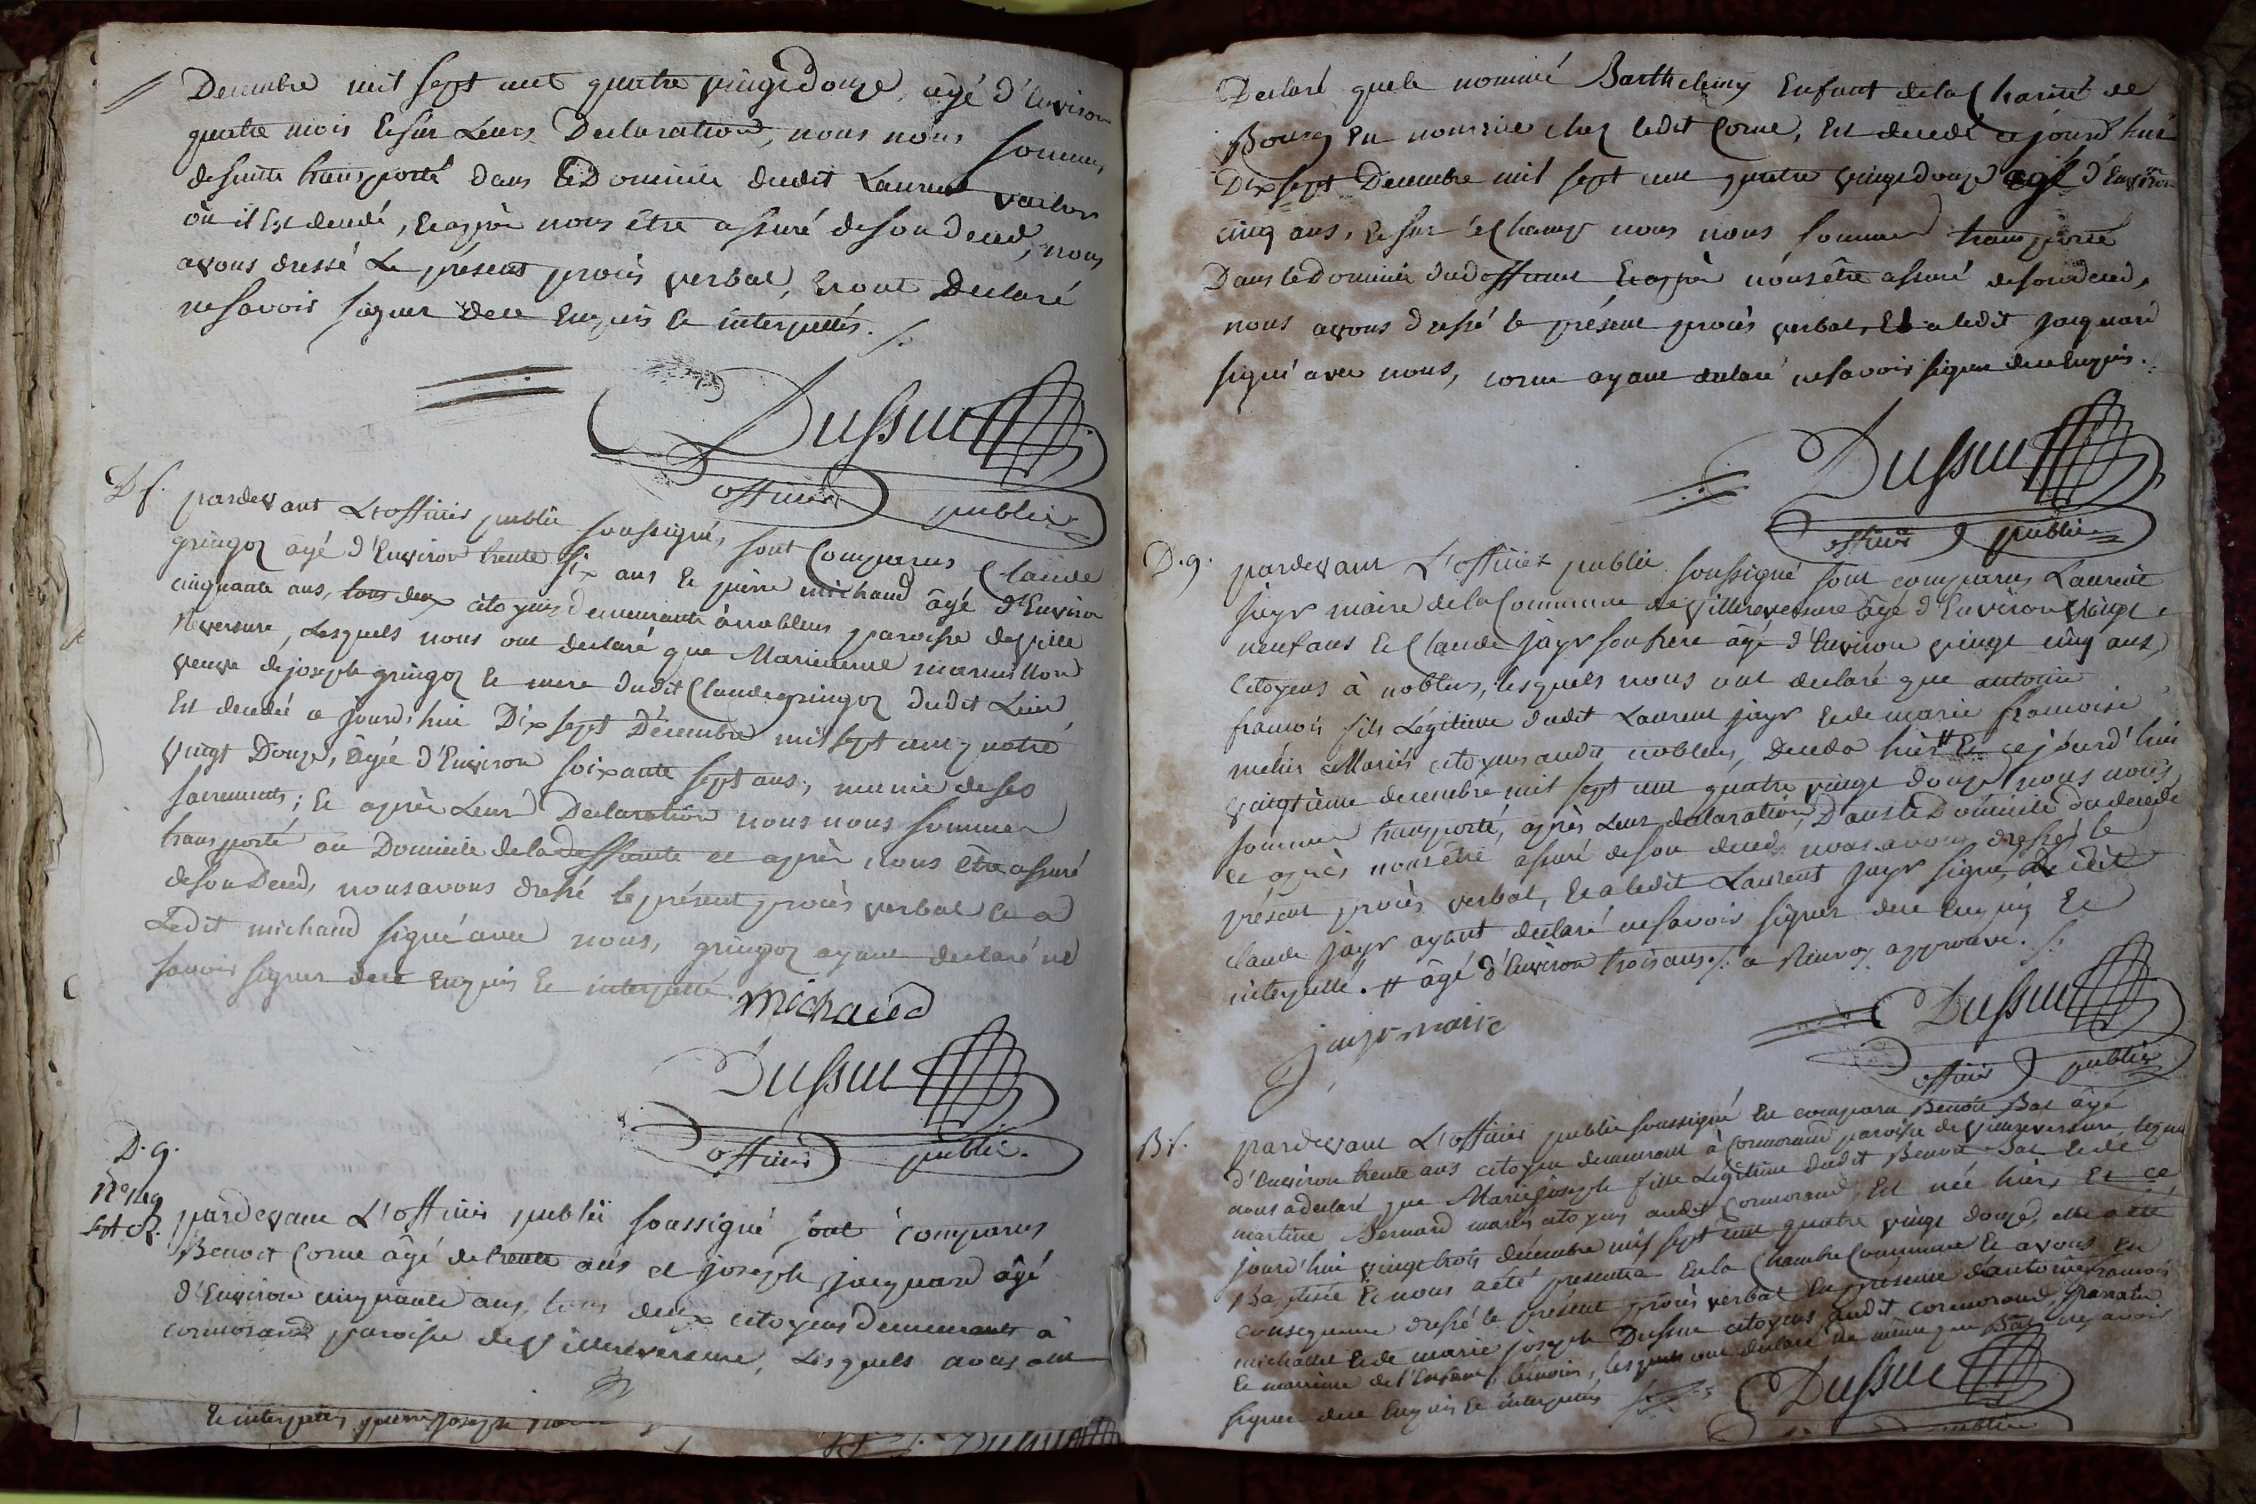 Decembre mil sept cent quatre vingt douze, agé d'Environ
quatre mois Et sur Leurs Declaration, nous nous sommes
de suitte transporté dans le Domicile dudit Laurent
ou il Est decedé, Et après nous être assuré de son deced, nous
avons dressé Le présent procès verbal, Et ont Declaré
ne savoir signer de ce Enquis Et interpellés.
Dussuc
officier public
D f. pardevant L'officier public soussigné, sont Comparus Claude
gringoz âgé d'Environ trente six ans Et pierre michaud âgé d'Environ
cinquante ans, tous deux citoyens demeurants à noblens paroisse de Ville
Reversure, Lesquels nous ont declaré que Marienne marmillon
veuve de joseph gringoz Et mere dudit Claude gringoz dudit Lieu
Est decedée ce jourd'hui Dix sept Décembre mil sept cent quatre
vingt Douze, âgée d'Environ soixante sept ans, munie de ses
sacrements; Et après Leur Declaration nous nous sommes
transporté au Domicile de la deffunte et après nous être assuré
de son Deced, nous avons dressé le présent procès verbal Et a
Ledit michaud signé avec nous, gringoz ayant declaré ne
savoir signer de ce Enquis Et interpellé
michaud
Dussuc
officier public.
D. g.
pardevant L'officier public soussigné sont comparus
Benoit Corne âgé de trente ans et joseph jacquard âgé
d'Environ cinquante ans, tous deux citoyens demeurants à
cormorand paroisse de Villereversure, Lesquels nous ont
Et interpellés pierre joseph
Declaré que le nommé Barthelemy Enfant de la Charité de
Bourg En nourrice chez ledit Corne, Est decedé ce jourd'hui
Dix sept Decembre mil sept cent quatre vingt douze agé d'Environ
cinq ans, Et sur le Champ nous nous sommes transporté
Dans le Domicile dud. Et après nous être assuré de son deced,
nous avons dressé le présent procès verbal, Et a ledit jacquard
signé avec nous, corne ayant declaré ne savoir signer de ce Enquis.
Dussuc
officier public
D. g. pardevant L'officier public soussigné sont comparus Laurent
jayr maire de la Commune de Villereversure âgé d'Environ vingt
neuf ans Et Claude jayr son frere âgé d'Environ vingt cinq ans,
Citoyens à noblens, lesquels nous ont declaré que antoine
francois fils Légitime dudit Laurent jayr Et de marie francoise
mariés citoyens audit noblens, Deceda hier # Et ce jourd'hui
vingtième decembre mil sept cent quatre vingt douze, nous nous
sommes transporté, après Leur declaration, Dans le Domicile du decedé
Et après nous être assuré de son deced, nous avons dressé le
présent procès verbal, Et a ledit Laurent jayr signé, Et ledit
claude jayr ayant declaré ne savoir signer de ce Enquis Et
interpellé. # âgé d'Environ trois ans. a Renvoy approuvé.
jayr maire
Dussuc
officier public
B f. pardevant L'officier public soussigné Est comparu Benoit Bal âgé
d'Environ trente ans citoyen demeurant à Cormorand paroisse de Villereversure, lequel
nous a declaré que Marie joseph fille Légitime dudit Benoit Bal Et de
martine Bernard mariés citoyens audit Cormorand, Est née hier, Et ce
jourd'hui vingt trois décembre mil sept cent quatre vingt douze, elle a été
Baptisée Et nous a été presentée En la Chambre Commune Et avons En
consequence dressé le présent procès verbal En présence d'antoine francois
michallet Et de marie joseph Dussuc citoyens audit cormorand, parrain
Et marraine de l'Enfant, témoins, lesquels ont declaré de même que Bal ne savoir
signer de ce Enquis Et interpellés
Dussuc
public